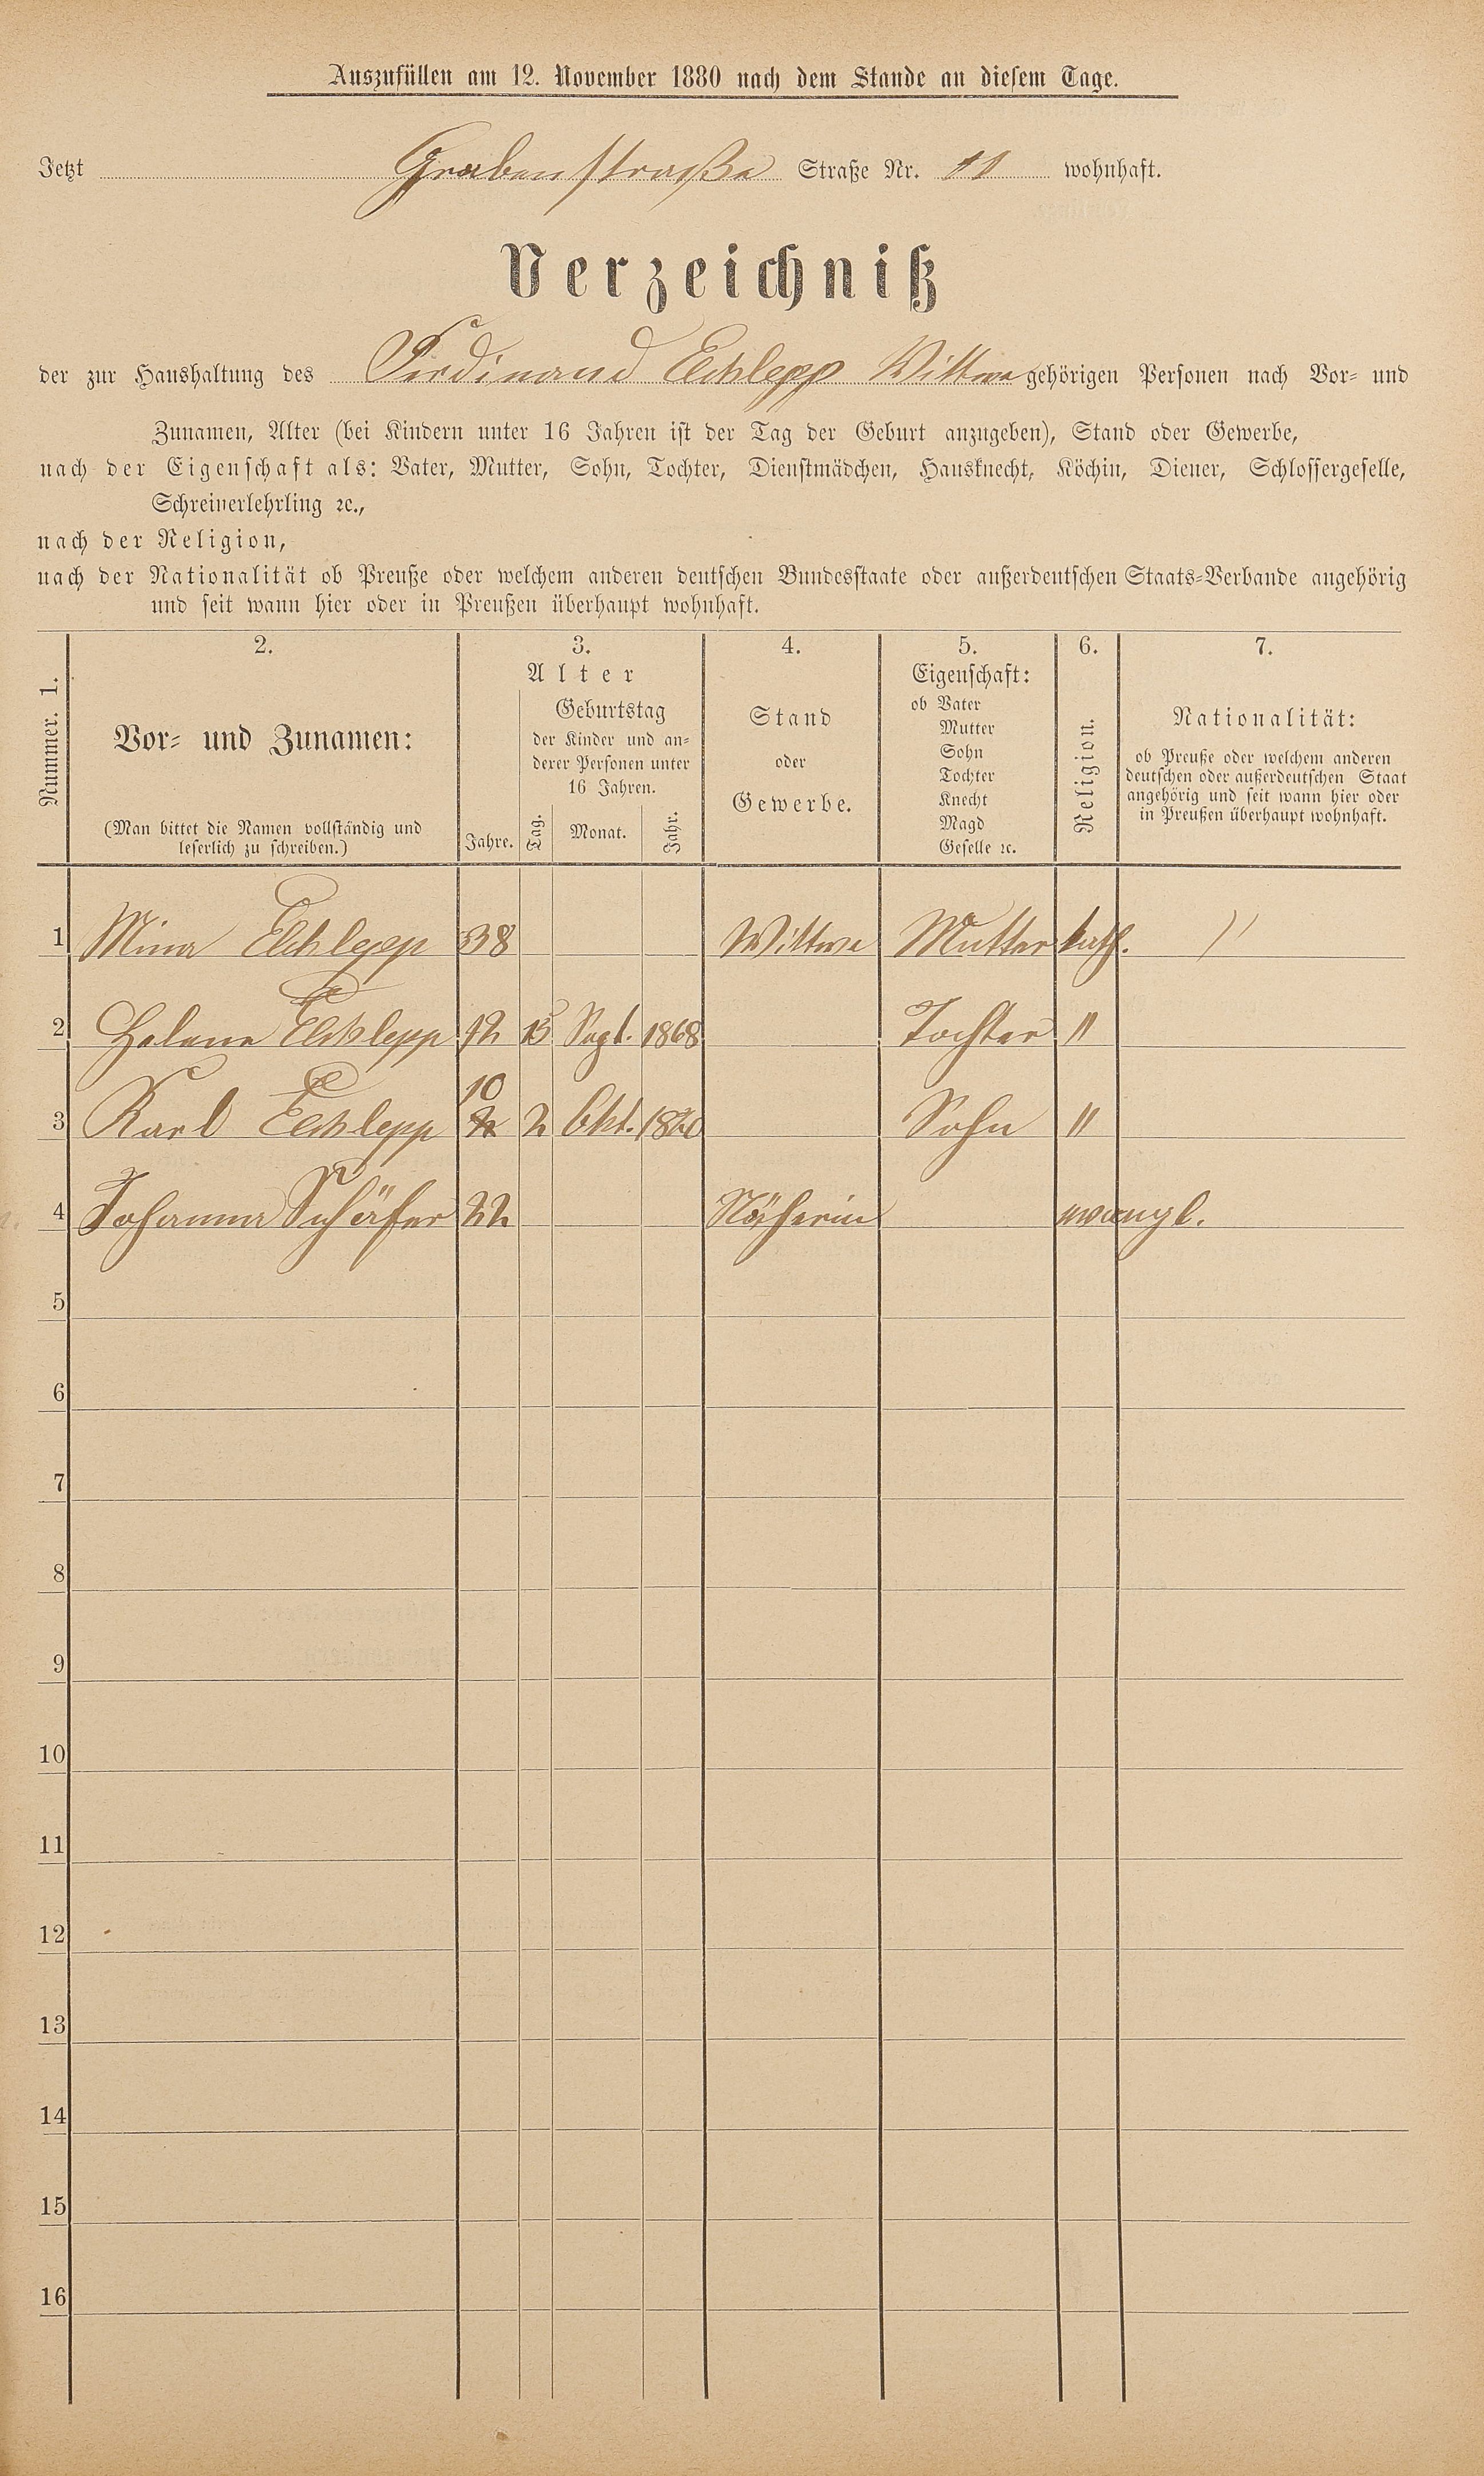 Auszufüllen am 12. November 1880 nach dem Stande an diesem Tage.
Jetzt Grabenstraße Straße Nr. 11 wohnhaft.
Verzeichniß
der zur Haushaltung des Ferdinand Wittwe gehörigen Personen nach Vor- und
Zunamen, Alter (bei Kindern unter 16 Jahren ist der Tag der Geburt anzugeben), Stand oder Gewerbe,
nach der Eigenschaft als: Vater, Mutter, Sohn, Tochter, Dienstmädchen, Hausknecht, Köchin, Diener, Schlossergeselle,
Schreinerlehrling ꝛc.,
nach der Religion,
nach der Nationalität ob Preuße oder welchem anderen deutschen Bundesstaate oder außerdeutschen Staats-Verbande angehörig
und seit wann hier oder in Preußen überhaupt wohnhaft.
Nummer. 1.
2.
Vor- und Zunamen:
(Man bittet die Namen vollständig und
leserlich zu schreiben.)
3.
Alter
Jahre.
Geburtstag
der Kinder und an-
derer Personen unter
16 Jahren.
Tag.
Monat.
Jahr.
4.
Stand
oder
Gewerbe.
5.
Eigenschaft:
ob Vater
Mutter
Sohn
Tochter
Knecht
Magd
Geselle ꝛc.
6.
Religion.
7.
Nationalität:
ob Preuße oder welchem anderen
deutschen oder außerdeutschen Staat
angehörig und seit wann hier oder
in Preußen überhaupt wohnhaft.
1 Mina 38 Wittwe Mutter kath. "
2 Helena 12 Sept. 1868 Tochter "
3 Karl 10 2 Okt. Sohn "
4 Johanna Schäfer 22 Näherin evangl.
5
6
7
8
9
10
11
12
13
14
15
16